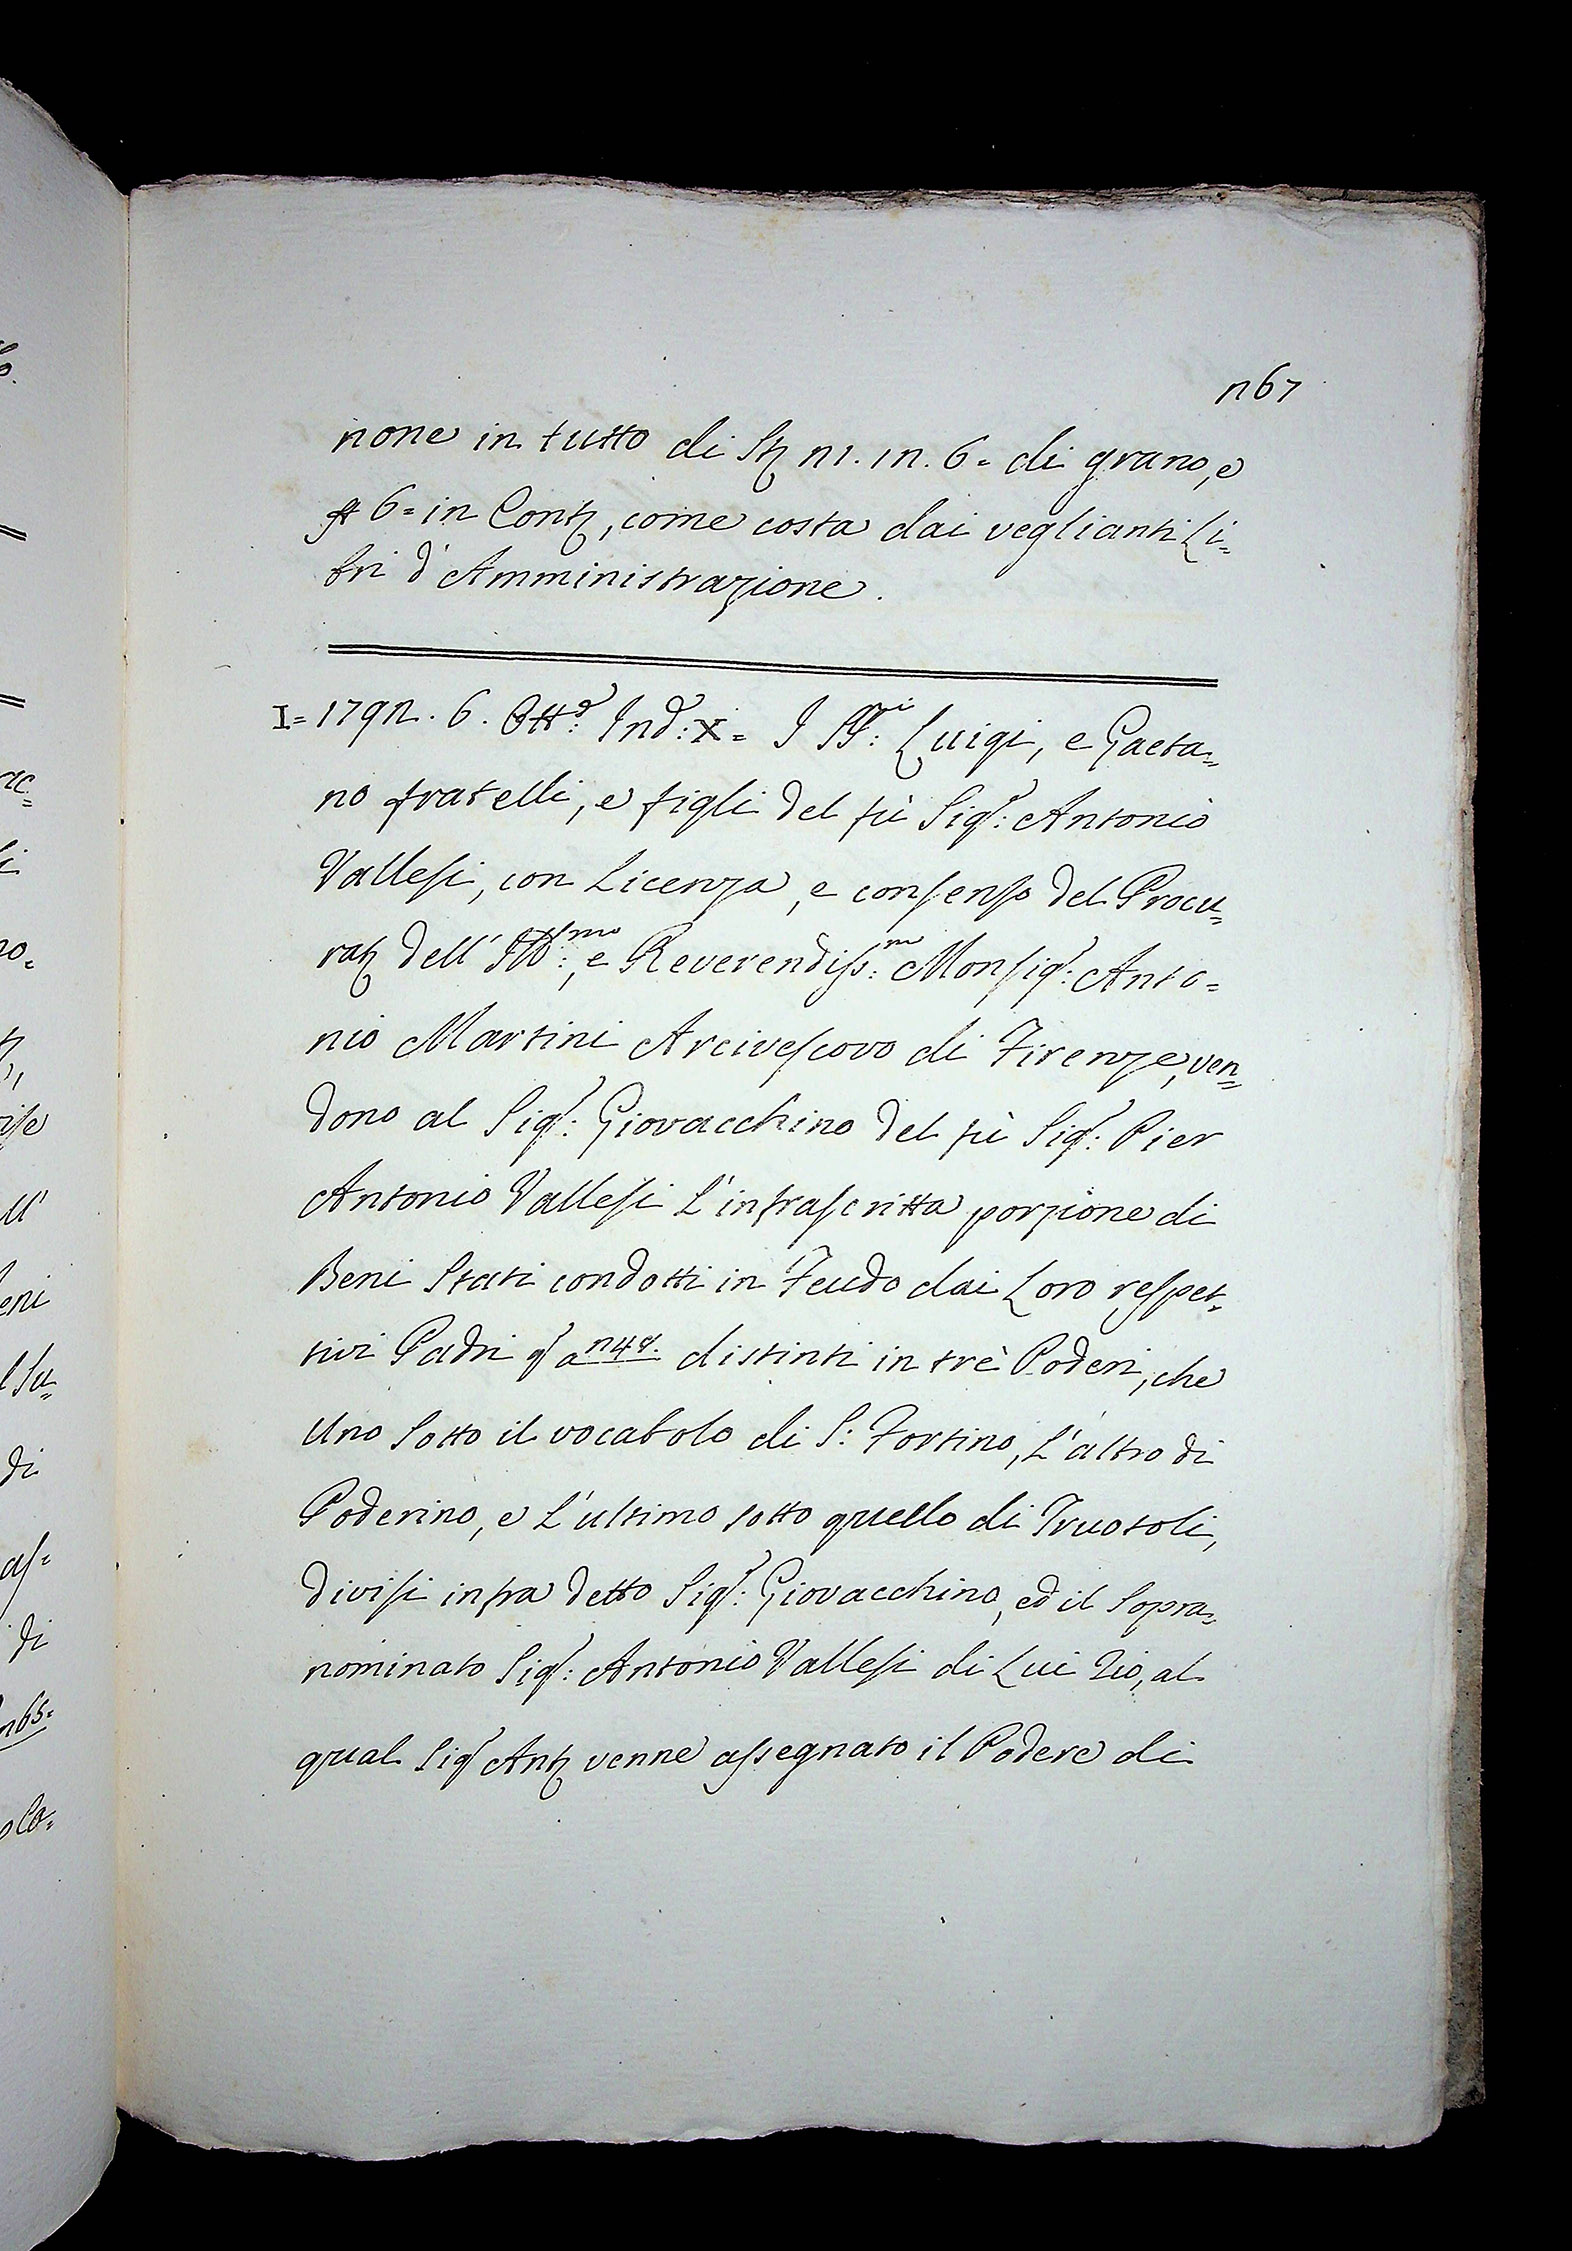 267
none in tutto di St. 21. 12. 6 = di grano, e
£ 6 = in Cont., come costa dai veglianti Li=
bri d'Amministrazione.
I = 1792. 6. Ott.e Ind: X = I SS.ri: Luigi, e Gaeta=
no fratelli, e figli del fù Sig.r: Antonio
Vallesi, con Licenza, e consenso del Procu=
rat. dell'Ill.mo: e Reverendiss.mo: Monsig.r: Anto=
nio Martini Arcivescovo di Firenze, ven=
dono al Sig.r: Giovacchino del fù Sig.r: Pier
Antonio Vallesi L'infrascritta porzione di
Beni Stati condotti in Feudo dai Loro respet=
tivi Padri a 248. distinti in trè Poderi, che
Uno Sotto il vocabolo di S: Fortino, L'altro di
Poderino, e L'ultimo sotto quello di Truotoli,
divisi infra detto Sig.r: Giovacchino, ed il Sopra=
nominato Sig.r: Antonio Vallesi di Lui Zio, al
qual Sig.r Ant. venne assegnato il Podere di